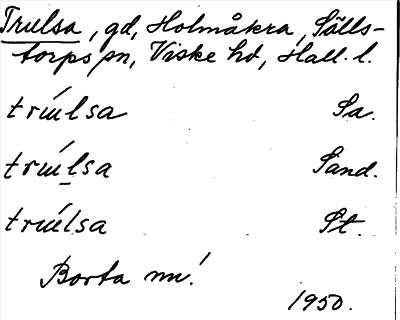 Trulsa, gd, Holmåkra, Sälls-
torps sn, Viske hd, Hall. l.
trúlsa Sa.
trúlsa Sand.
trúlsa St.
Borta nu!
1950.